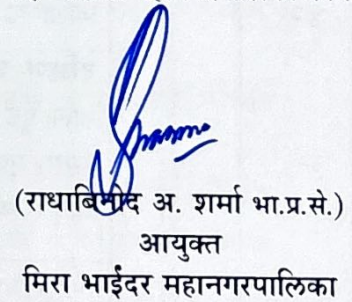 Sharma
(राधाबिनोद अ. शर्मा भा.प्र.से.)
आयुक्त
मिरा भाईंदर महानगरपालिका